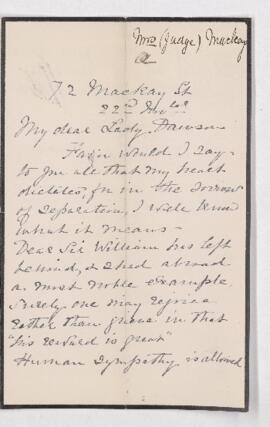 Mrs (Judge) Mackay
72 Mackay St
22nd Nov
My dear Lady Dawson
Fain would I say
to you all that my heart
dictates, for in the sorrow
of separation, I well know
what it means –
Dear Sir William has left
behind, & shed abroad
a most noble example.
Surely one may rejoice
rather than grieve in that
"his reward is great"
Human Sympathy is allowed